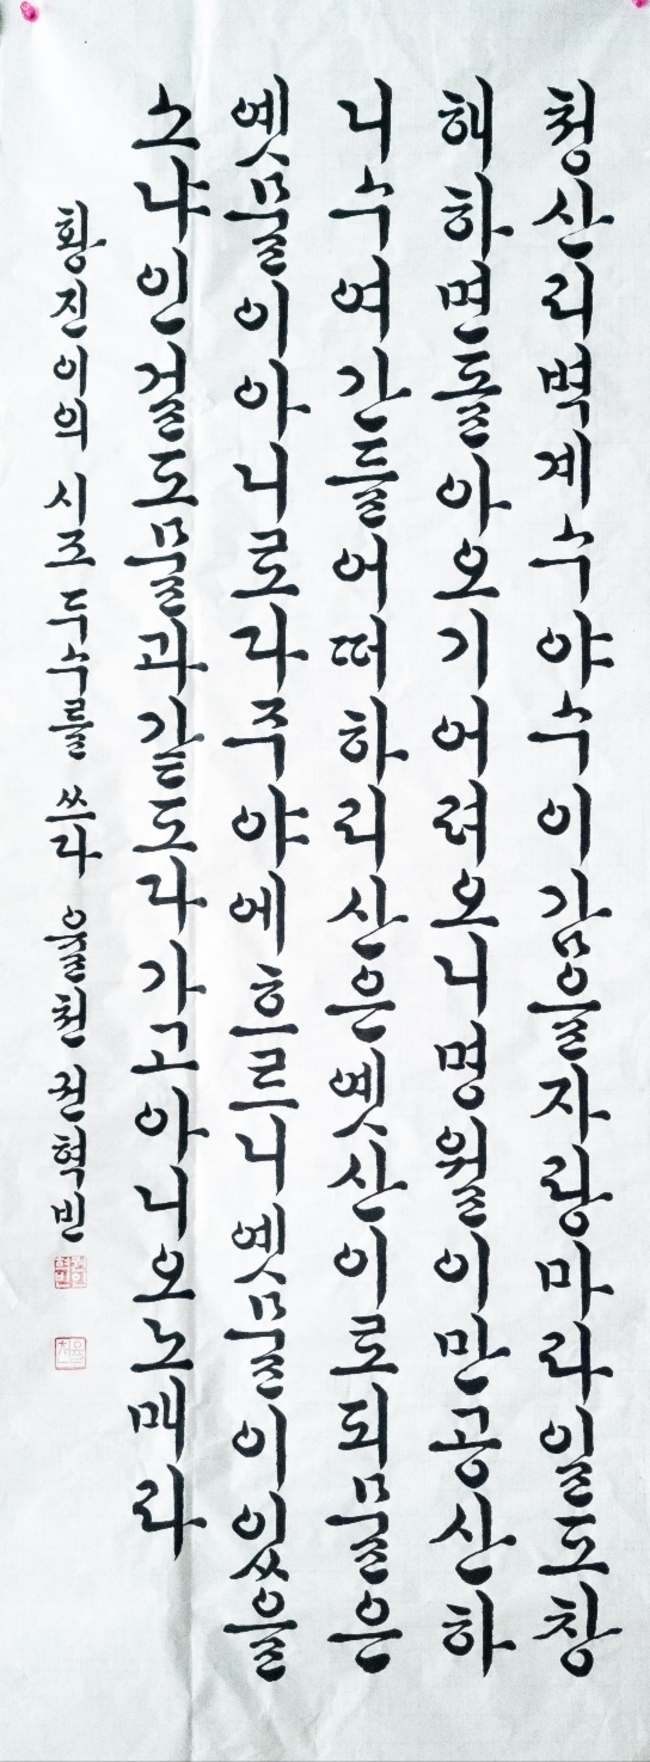 청산리벽계수야수이감을자랑마라일도창
해하면돌아오기어려오니명월이만공산하
니수여간들어떠하리산은옛산이로되물은
옛물이아니로다주야에흐르니옛물이있을
소냐인걸도물과같도다가고아니오노매라
황진이의 시조 두수를 쓰다 율천 권혁빈